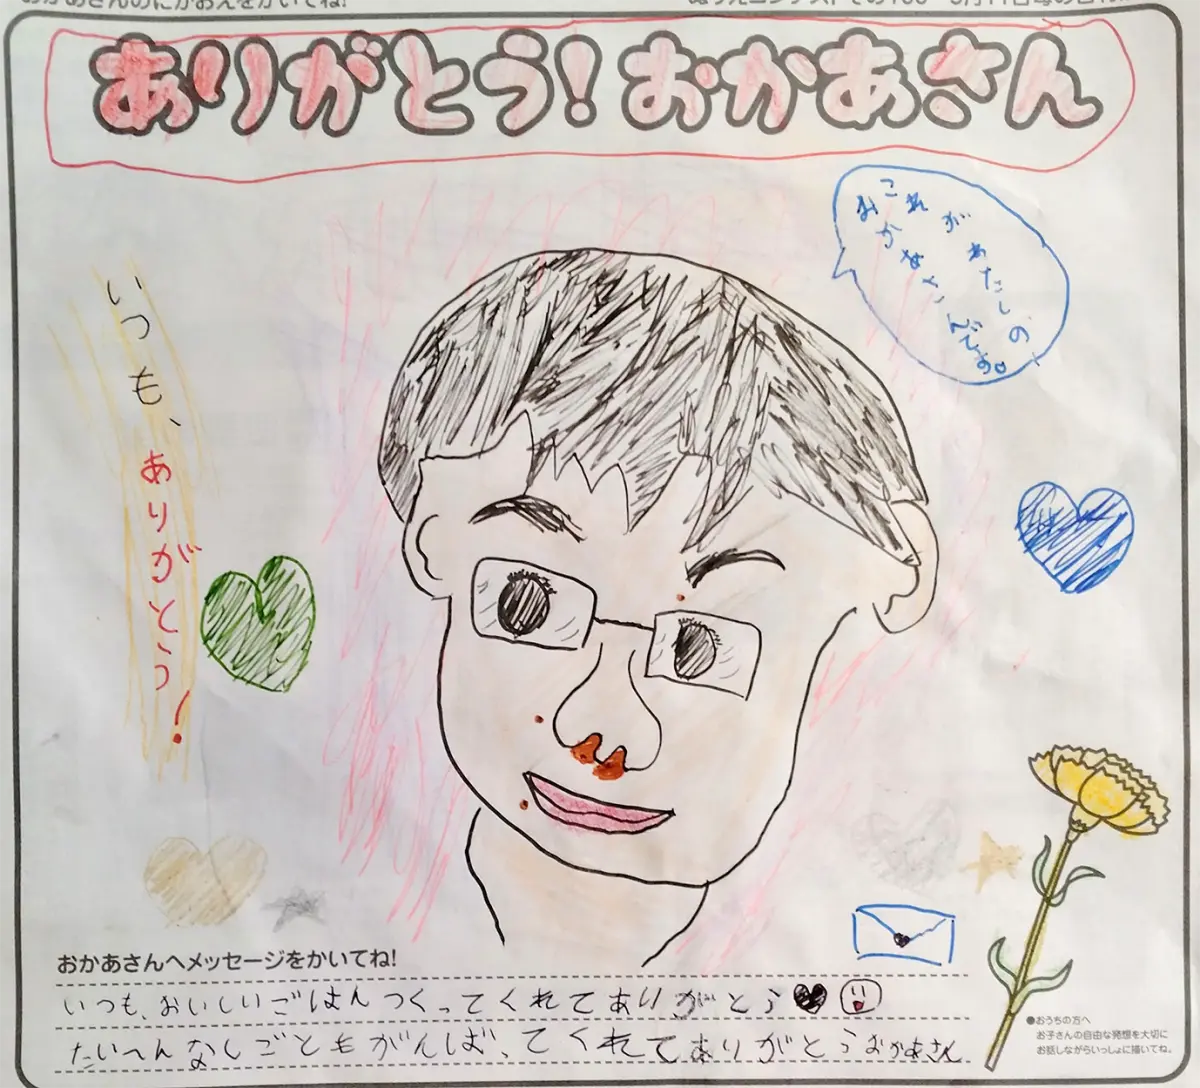 おかあさんのにがおえをかいてね!
ありがとう!おかあさん
これがわたしの
おかあさんです。
いつも、ありがとう!
おかあさんへメッセージをかいてね!
いつも、おいしいごはんつくってくれてありがとう
たいへんなしごともがんばってくれてありがとうおかあさん
●おうちの方へ
お子さんの自由な発想を大切に
お話しながらいっしょに描いてね。